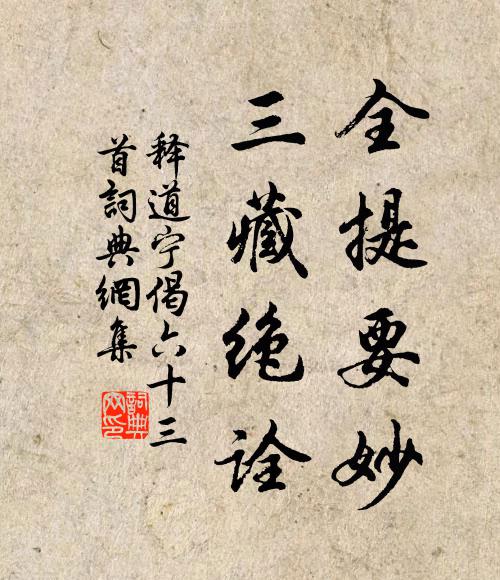 全提要妙
三藏绝诠
释道宁偈六十三
首詞典網集
詞典网印